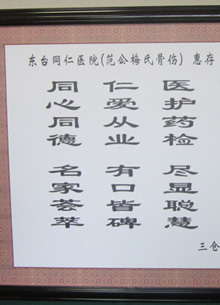 东台同仁医院(范公梅氏骨伤) 惠存
同仁医
心爱护
同从药
德业检
名有尽
家口显
荟皆聪
萃碑慧
三仓